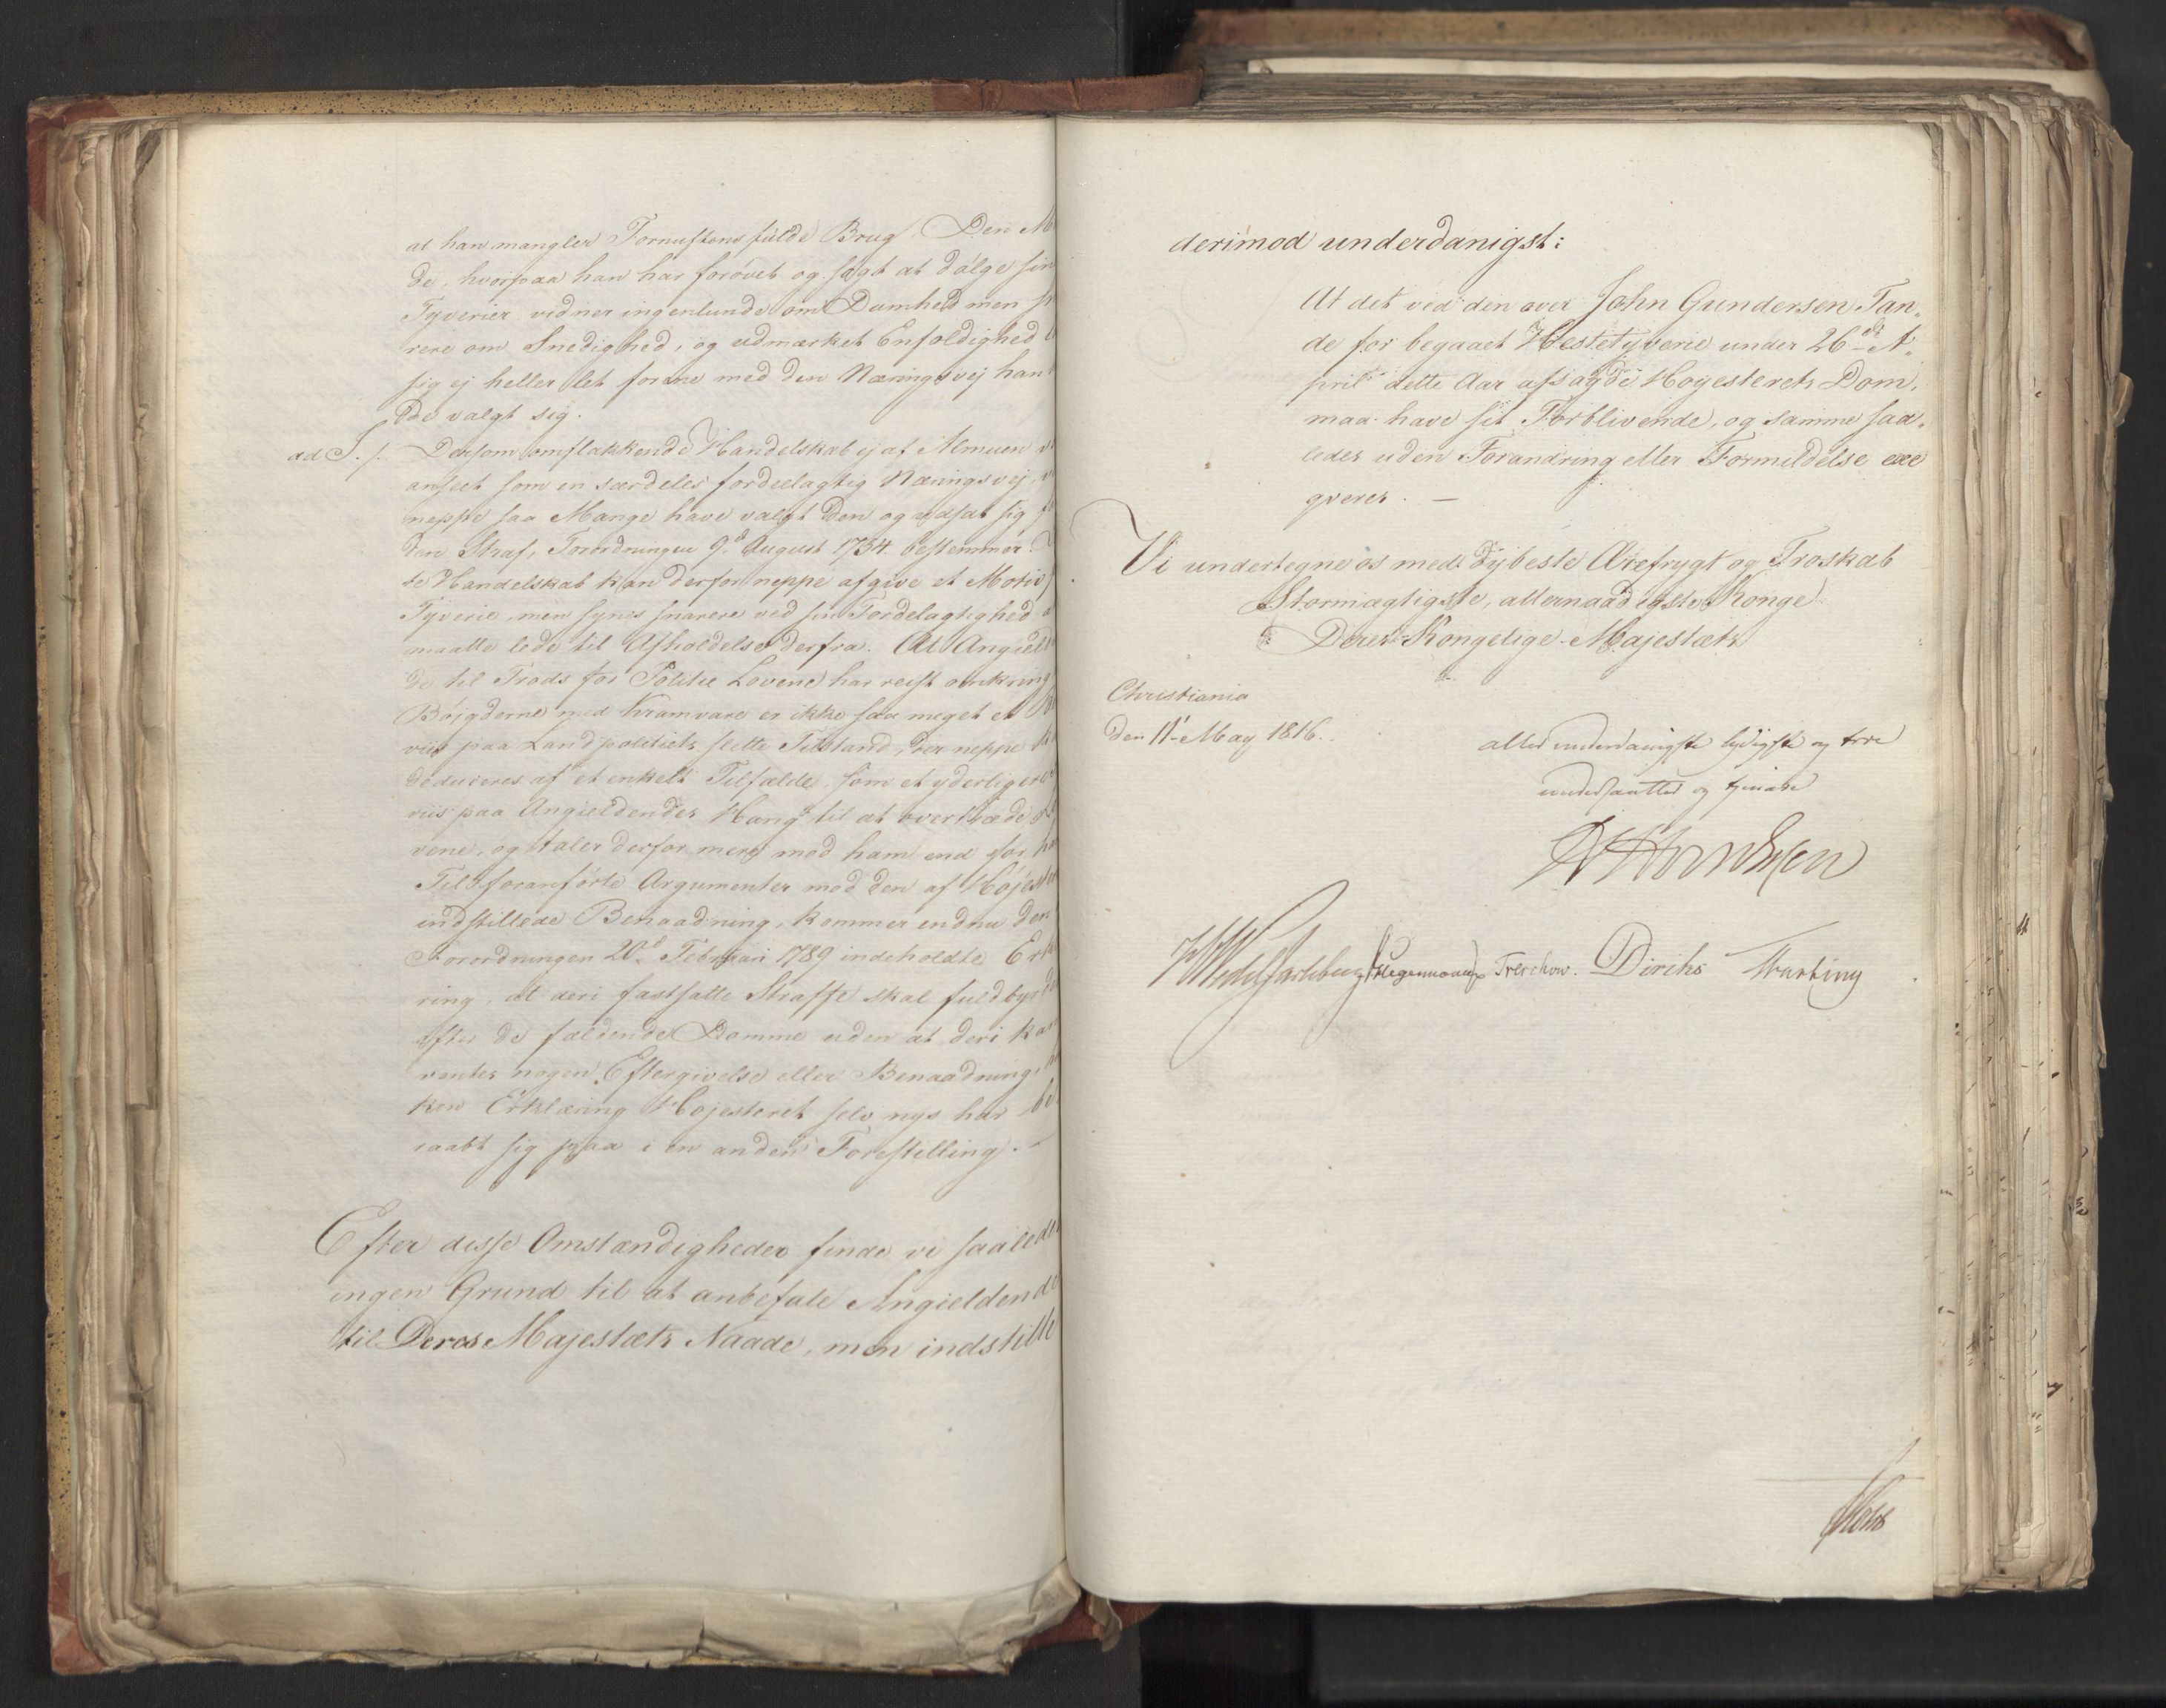 at han mangler Fornuftens fulde Brug. Den M
de, hvorpaa han har forøvet og søgt at dølge sin
Tyverier vidner ingenlunde om Dumhed men sn
rere om Snedighed, og udmærket Enfoldighed l
sig ej heller let forene med den Næringsvej han
de valgt sig.
ad 3./. Dersom omflakkende Handelskab ej af Almuen
anseet som en særdeles fordeelagtig Næringsvej,
neppe saa Mange have valgt den og udsat sig f
den Straf, Forordningen 9.d August 1754 bestemmer.
te Handelskab kan derfor neppe afgive et Motiv
Tyverie, men synes snarere ved sin Fordelagtighed a
maatte lede til Afholdelse derfra. At Angield
de til Trods for Politie Lovene har reist omkring
Bøjgderne med Kramvare er ikke saa meget et
viis paa Landpolitiets slette Tilstand, der neppe k
deduceres af et enkelt Tilfælde, som et yderligere
viis paa Angieldendes Hang til at overtræde L
vene, og taler derfor mere mod ham end for h
Til foranførte Argumenter mod den af Højest
indstillede Benaadning, kommer endnu den
Forordningen 20.d Februari 1789 indeholdte Erk
ring, at deri fastsatte Straffe skal fuldby
efter de fældende Domme uden at deri ka
ventes nogen Eftergivelse eller Benaadning,
ken Erklæring Højesteret selv nys har be
raabt sig paa i en anden Forestilling. -
Efter disse Omstændigheder finde vi saalede
ingen Grund til at anbefale Angieldende
til Deres Majestæts Naade, men indstille
derimod underdanigst:
At det ved den over John Gundersen Tan,
de for begaaet Hestetyverie under 26de A,
pril dette Aar afsagde Høyesterets Dom,
maa have sit Forblivende, og samme saa,
ledes uden Forandring eller Formildelse exe
qveres. —
Vi undertegne os med dybeste Ærefrygt og Troskab
Stormægtigste, allernaadigste Konge!
Deres Kongelige Majestæts
Christiania
den 11t May 1816.
allerunderdanigste lydigste og troe
undersaatter og tjenere
Wedel Jarlsberg Hegermann Treschow. Diriks